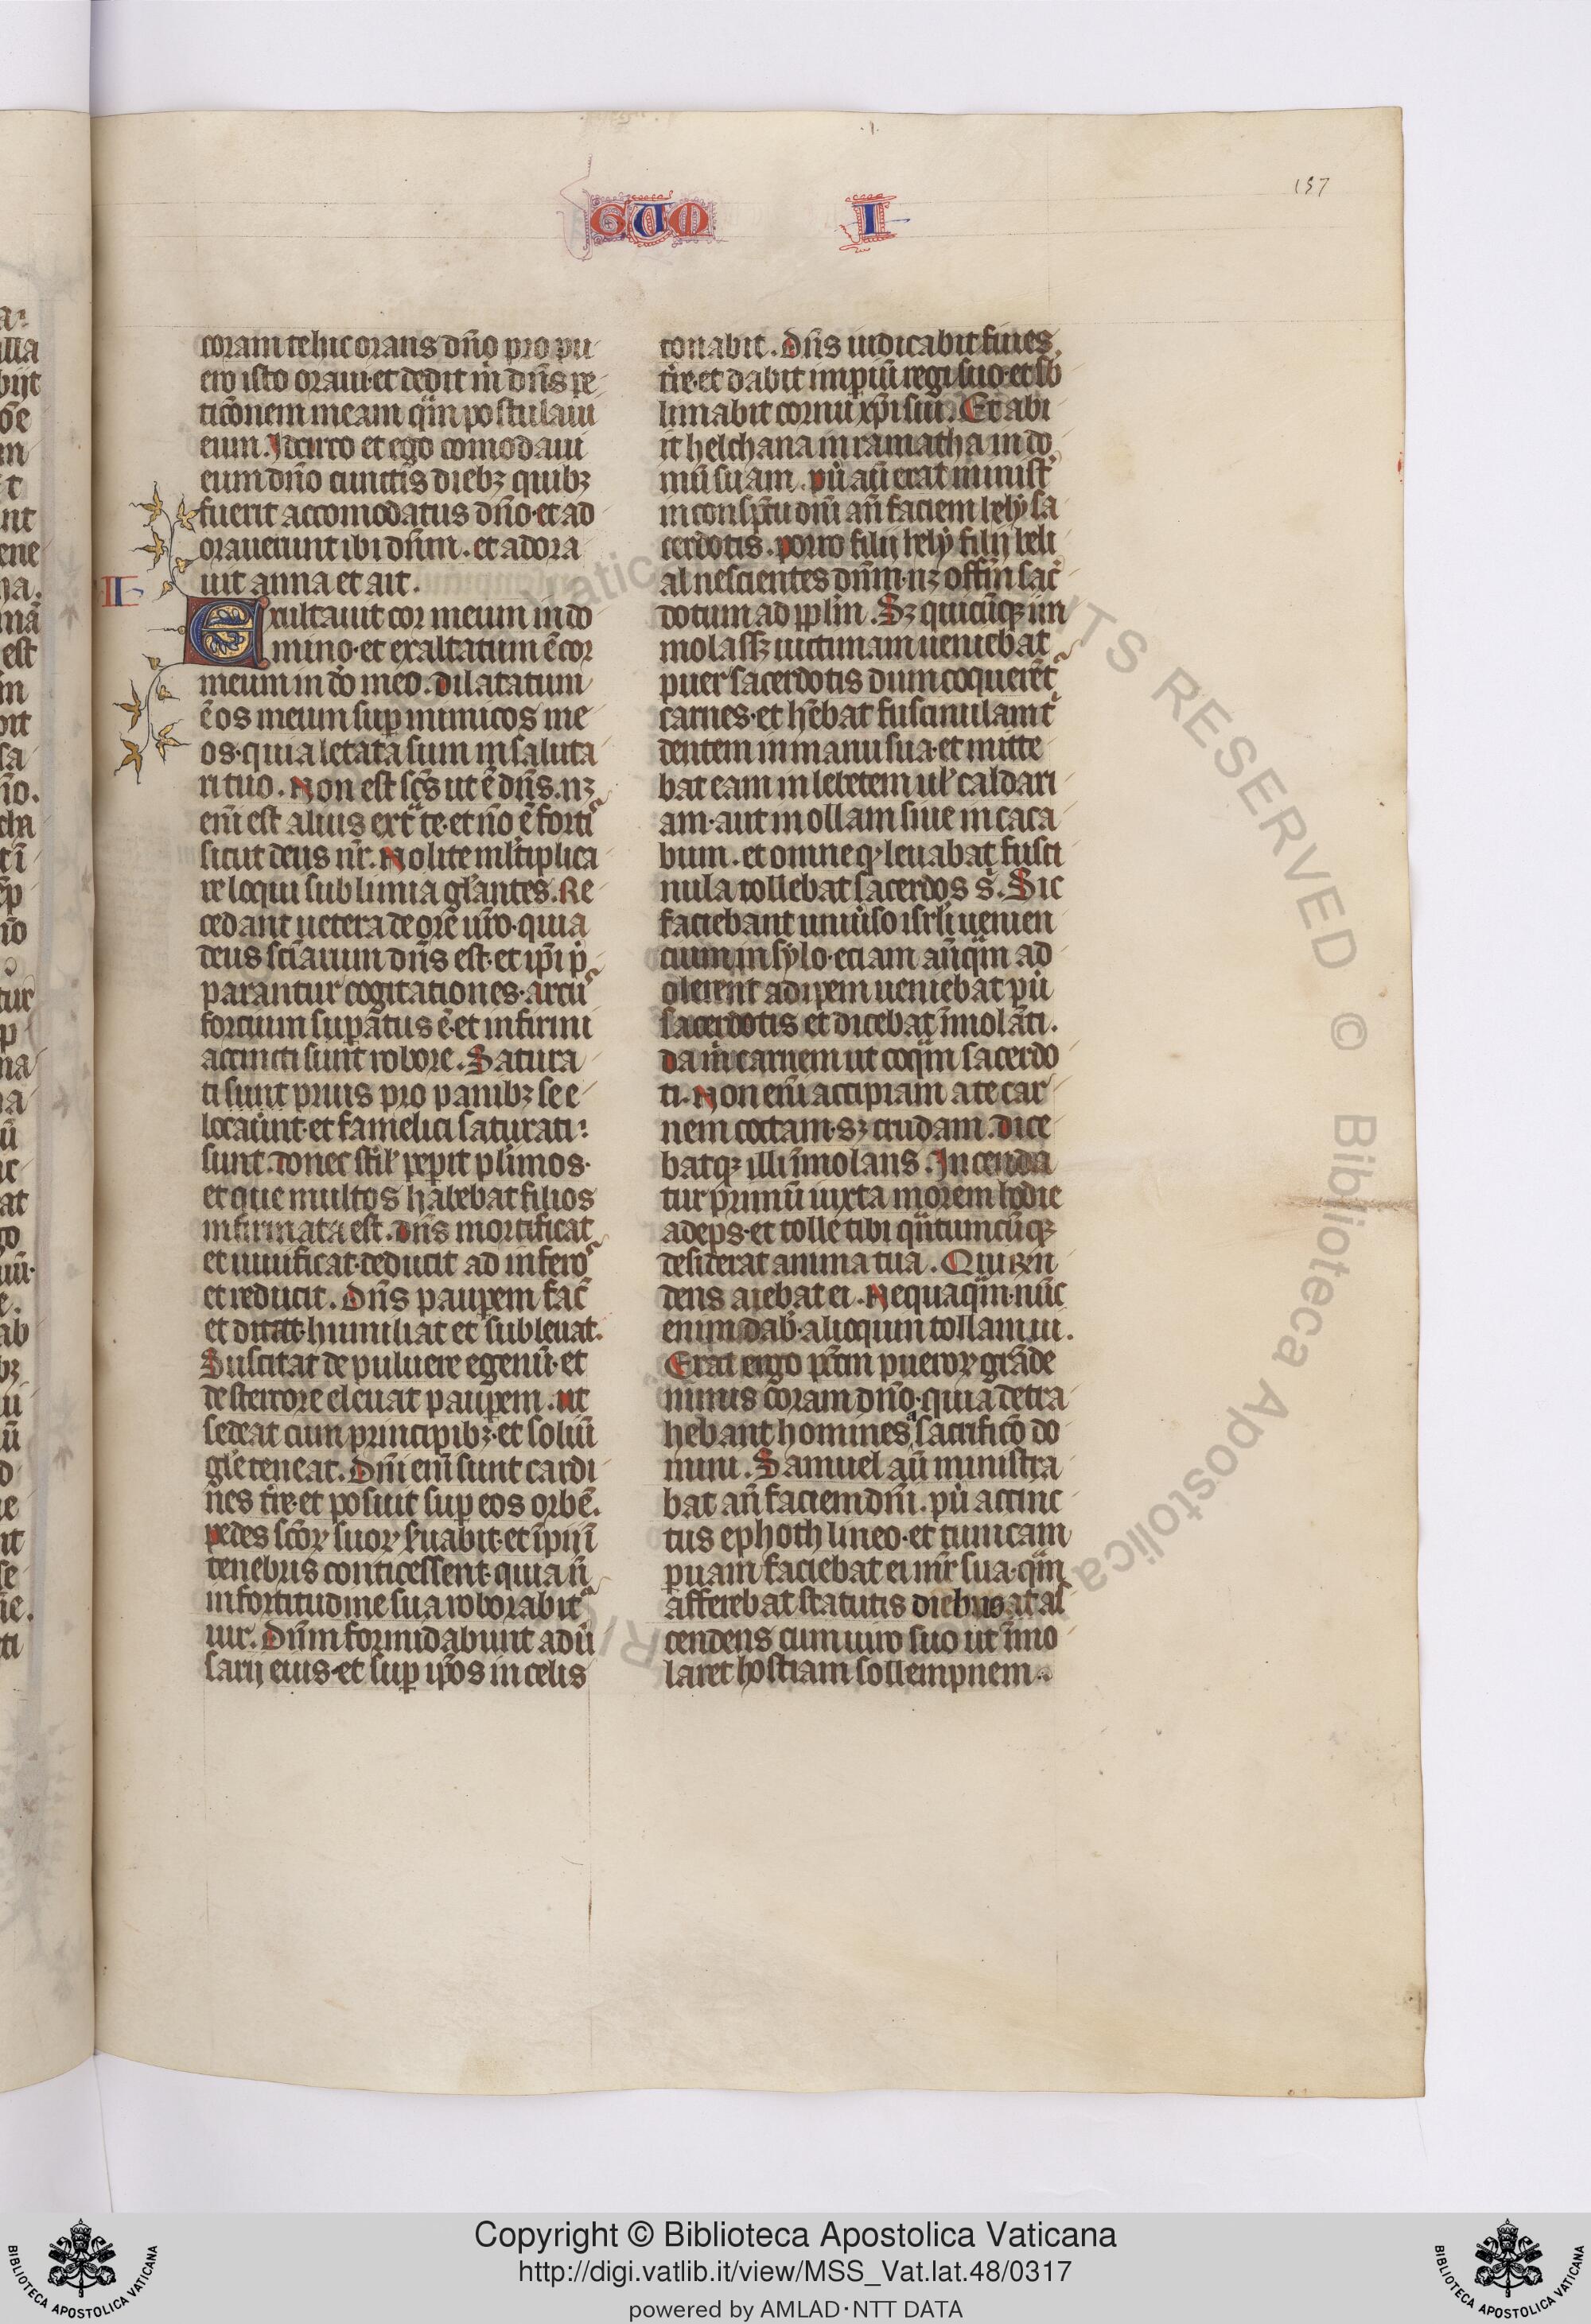 157
GUM I
coram te hic orans dn̄o pro pu
ero isto oraui·et dedit m̉ dn̄s pe
tic̄onem meam qͥm postulaui
eum. Idcirco et ego comodaui
eum dn̄o cunctis diebꝫ quibꝫ
fuerit accomodatus dn̄o·et ad
orauerunt ibi dn̄m. et adora
uit anna et ait.
II
Exultauit cor meum in do
mino·et exaltatum ē cor
meum in do meo. Dilatatum
ē os meum suꝑ inimicos me
os·quia letata sum in saluta
ri tuo. Non est sc̄s ut ē dn̄s. nꝫ
eni̅ est alius ext̾ te·et no̅ ē forti
sicut deus nr̄. Nolite ml̉tiplica
re loqui sublimia gl̉antes. Re
cedant uetera de ore ur̄o·quia
deus sc̄iarum dn̄s est·et ip̄i p̉
parantur cogitationes·arcu᷒
fortium suꝑatus ē·et infirmi
accincti sunt robore. Satura
ti sunt prius pro panibꝫ se e
locau̾nt·et famelici saturati
sunt. donec ster̉l peperit pl̉imos.
et que multos habebat filios
infirmata est. Dn̄s mortificat
et uiuificat·deducit ad infero᷒
et reducit. Dn̄s pauꝑem fac̄
et ditat·humiliat et subleuat.
Suscitat de puluere egenū·et
de stercore eleuat pauꝑem. ut
sedeat cum principibꝫ·et soliū
gl̄e teneat. Dn̄i eni̅ sunt cardi
nes t̾re·et posuit suꝑ eos orbē.
pedes sc̄oꝝ suoꝝ s̉uabit·et īpii ī
tenebris conticessent·quia n̄
in fortitudine sua roborabit᷒
uir. Dn̄m formidabunt adu̾
sarij eius·et suꝑ ip̄os in celis
tonabit. Dn̄s iudicabit fines
t̾re·et dabit imꝑiū regi suo·et sb
limabit cornu xp̄i sui. Et abi
it helchana in ramatha in do
mū suam. pu̾ au̅ erat minist̾
in consp̄tu dn̄i an̄ faciem hely sa
cerdotis. porro filij hely filij beli
al nescientes dn̄m·nꝫ offm̄ sac̾
dotum ad ꝓp̄lm. Sꝫ quicūqꝫ im
molassꝫ uictimam ueniebat
puer sacerdotis dum coquerēt᷒
carnes·et hēbat fuscinulam t᷒
dentem in manu sua·et mitte
bat eam in lebetem ul̉ caldari
am·aut in ollam siue in caca
bum. et omne qꝫ leuabat fusci
nula tollebat sacerdos s. Sic
faciebant uniu̾so isrl̉i uenien
cium in sylo·eciam an̄qͣm ad
olerent adipem ueniebat pu̾
sacerdotis et dicebat īmolāti.
da m̉ carnem ut coqͣm sacerdo
ti. Non eni̅ accipiam a te car
nem coctam·sꝫ crudam. dice
batqꝫ illi īmolans. Incenda
tur primū iuxta morem hodie
adeps·et tolle tibi qn̄tumcūqꝫ
desiderat anima tua. Qui rn̄
dens aiebat ei. Nequaqͣm·nūc
enim dab̉·alioquin tollam ui.
Erat ergo pc̄tm pueroꝝ grāde
nimis coram dn̄o·quia detra
hebant homines a sacrificō do
mini. Samuel au̅ ministra
bat an̄ faciem dn̄i. pu̾ accinc
tus ephoth lineo·et tunicam
puam faciebat ei mr̄ sua·qͣm
afferebat statutis diebus at as
cendens cum uiro suo ut īmo
laret hostiam sollempnem.
Copyright © Biblioteca Apostolica Vaticana
http://digi.vatlib.it/view/MSS_Vat.lat.48/0317
powered by AMLAD·NTT DATA
BIBLIOTECA APOSTOLICA VATICANA
BIBLIOTECA APOSTOLICA VATICANA